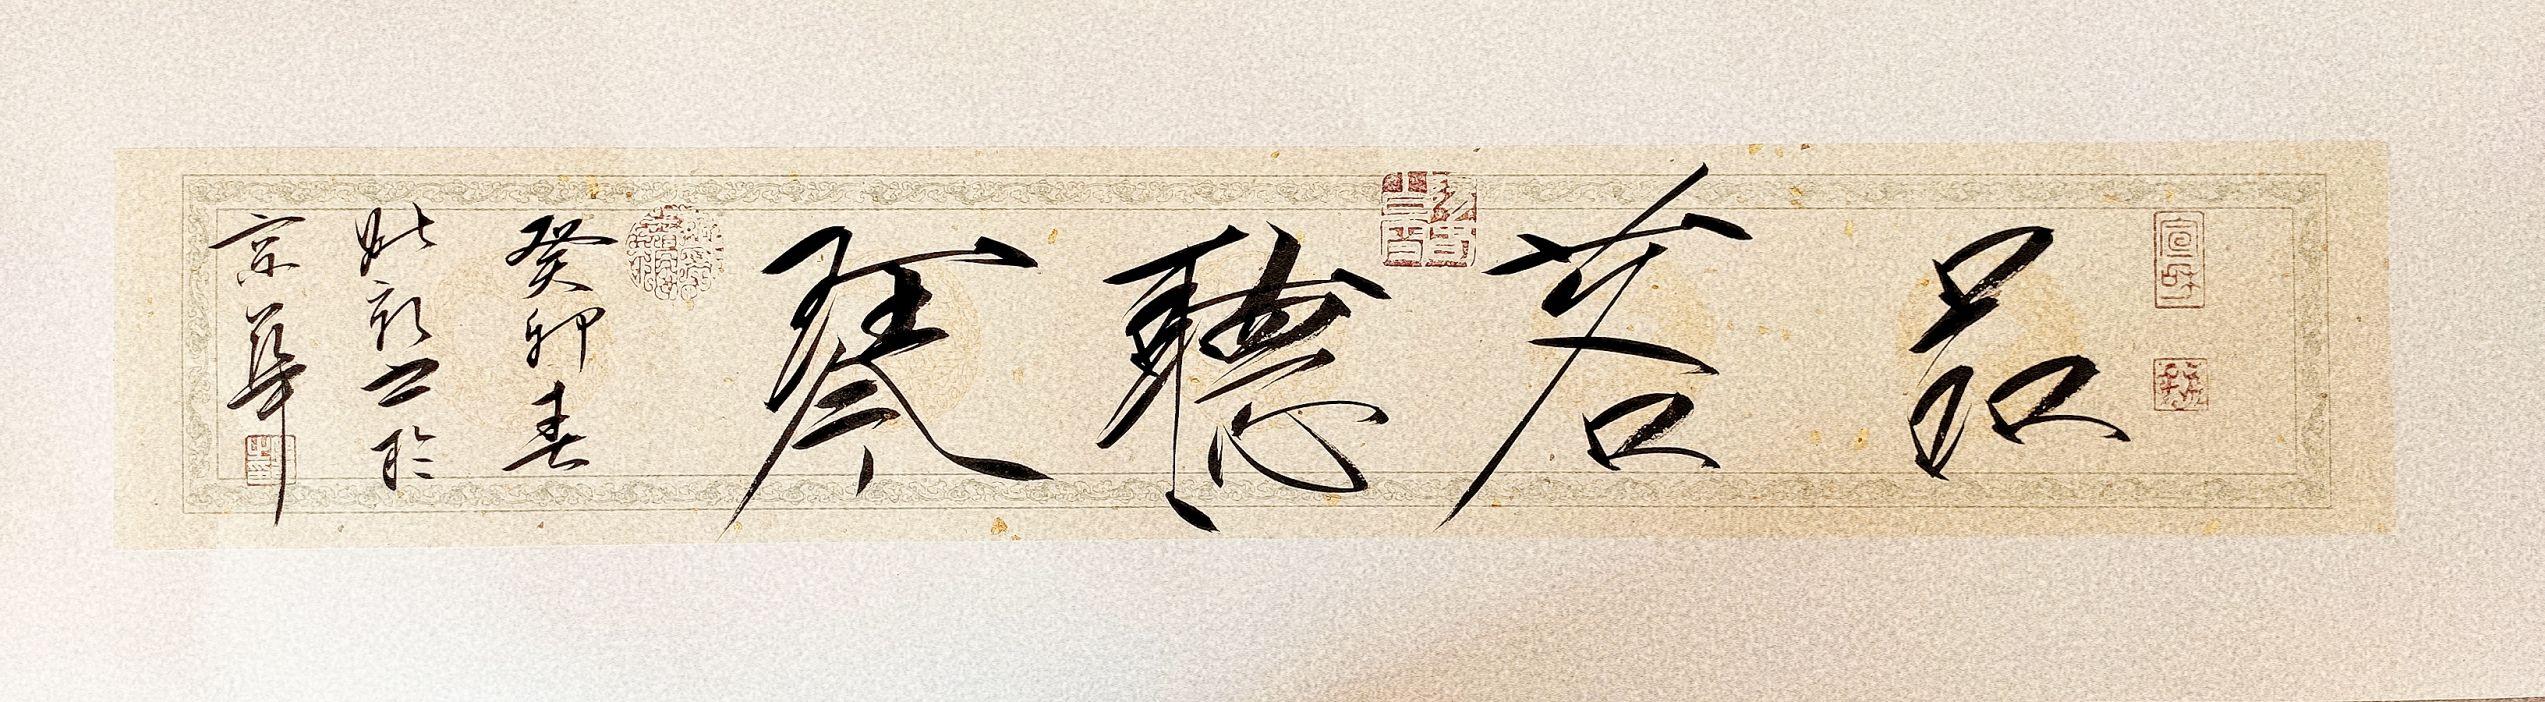 品茗聽琴
癸卯春
書於
京華